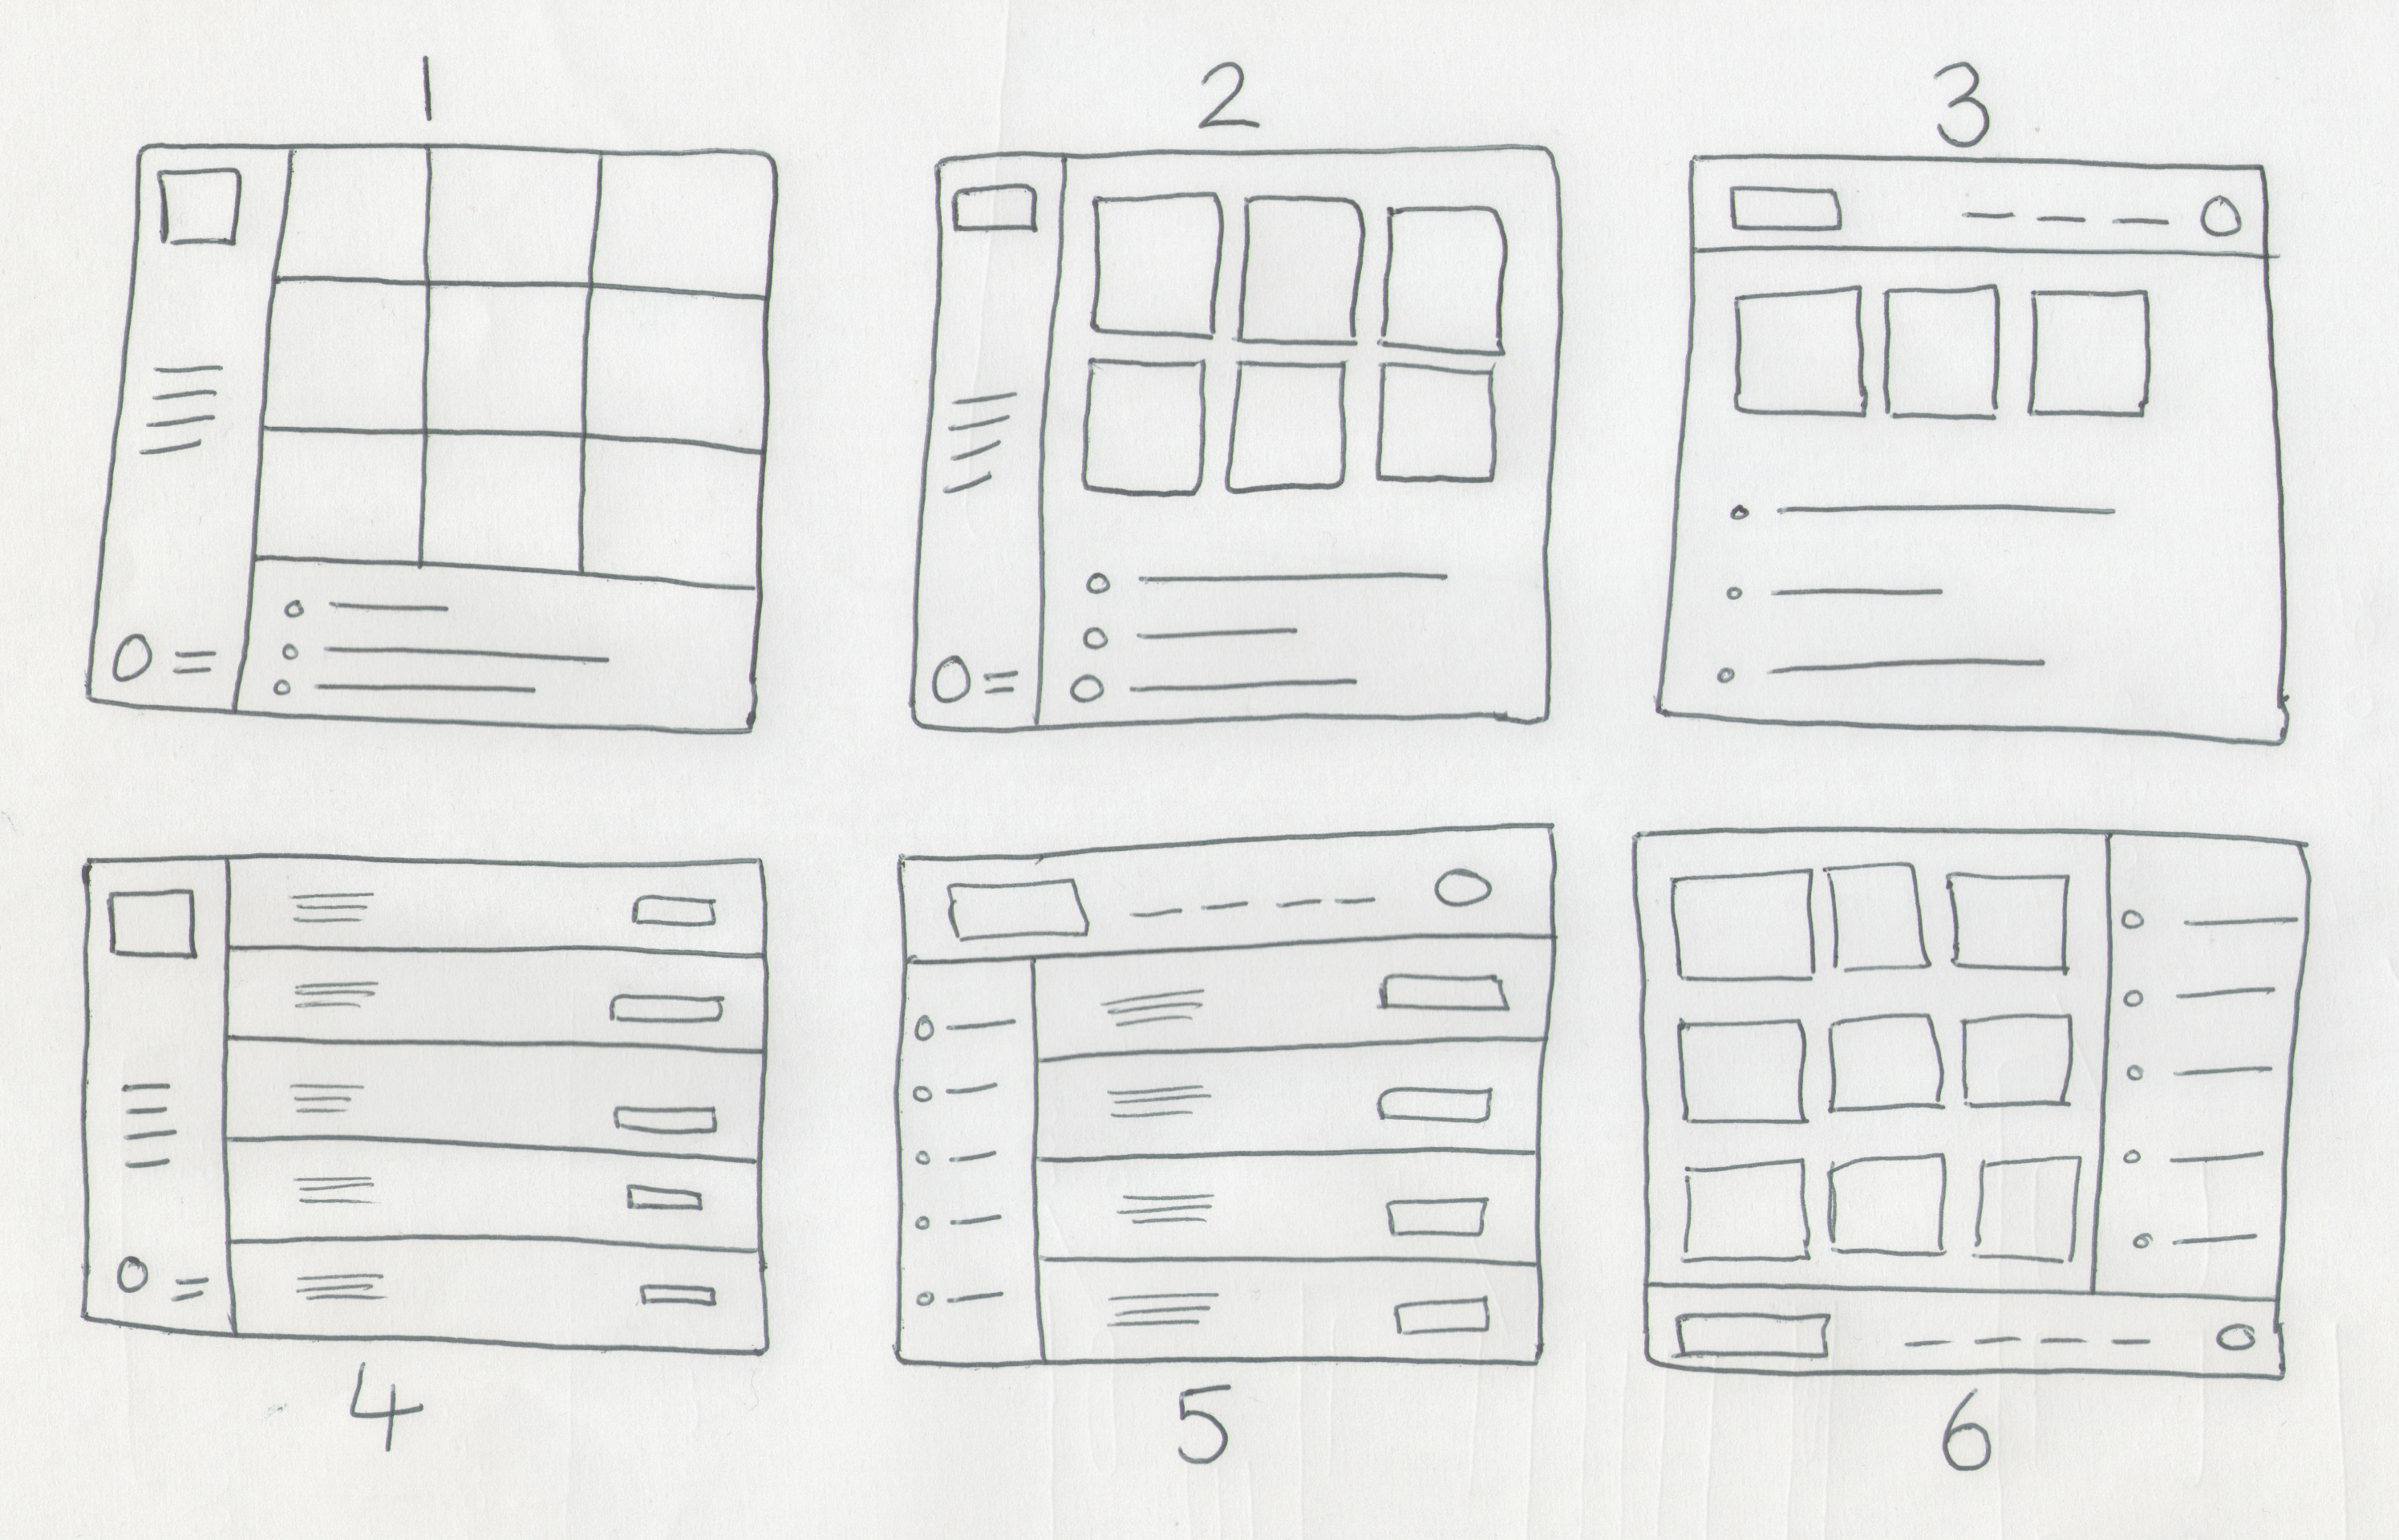 1 2 3
4 5 6